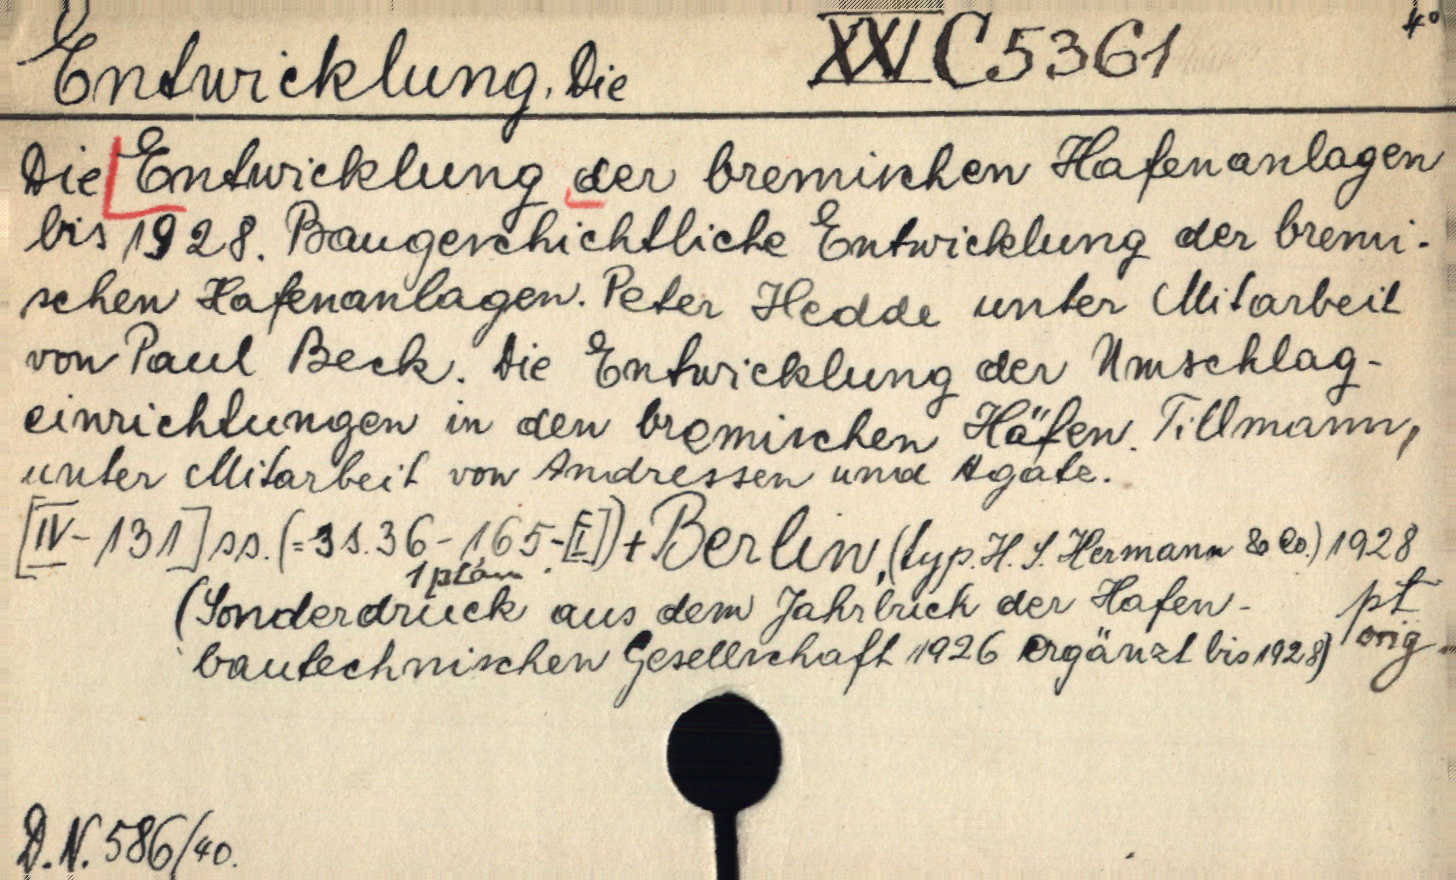 Entwicklung, Die XXI C 5361 4°
Die Entwicklung der bremischen Hafenanlagen
bis 1928. Baugeschichtliche Entwicklung der bremi-
schen Hafenanlagen. Peter Hedde unter Mitarbeit
von Paul Beck. Die Entwicklung der Umschlag-
einrichtungen in den bremischen Häfen. Tillmann,
unter Mitarbeit von Andressen und Agate.
[IV-131] ss. (= S. 36-165-[I]) + Berlin, (typ. H. S. Hermann & Co.) 1928
1 plan
(Sonderdruck aus dem Jahrbuch der Hafen- pł
bautechnischen Gesellschaft 1926 ergänzt bis 1928) orig
D.N. 586/40.